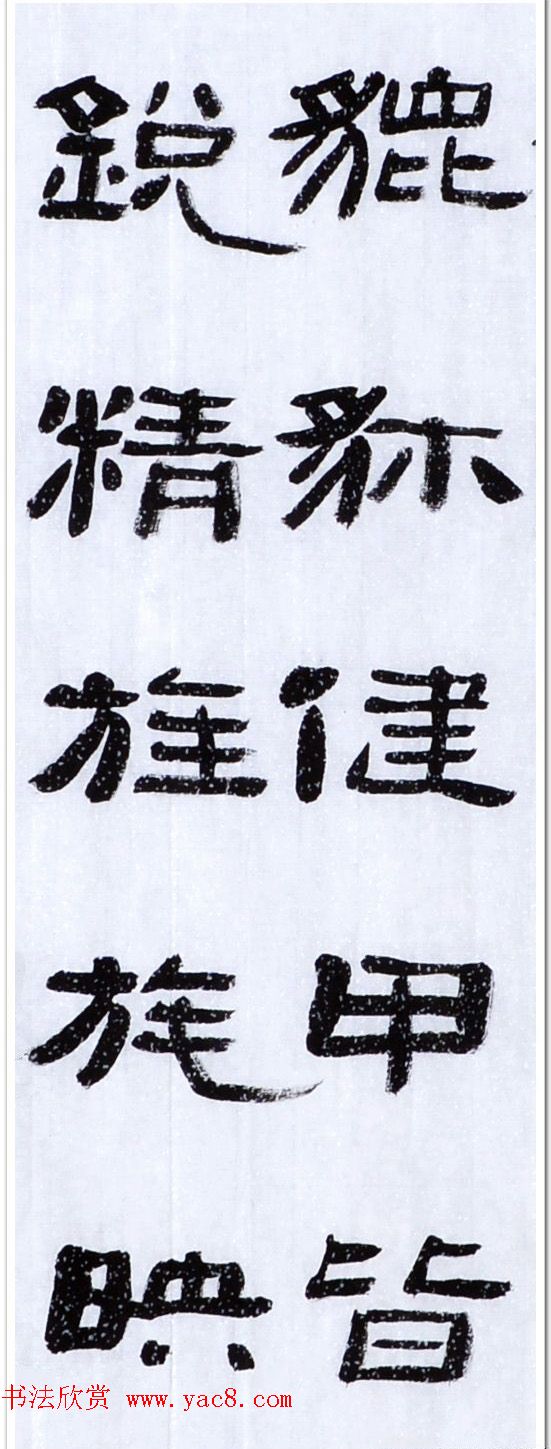 貔貅健甲皆
銳精旌旄映
书法欣赏 www.yac8.com